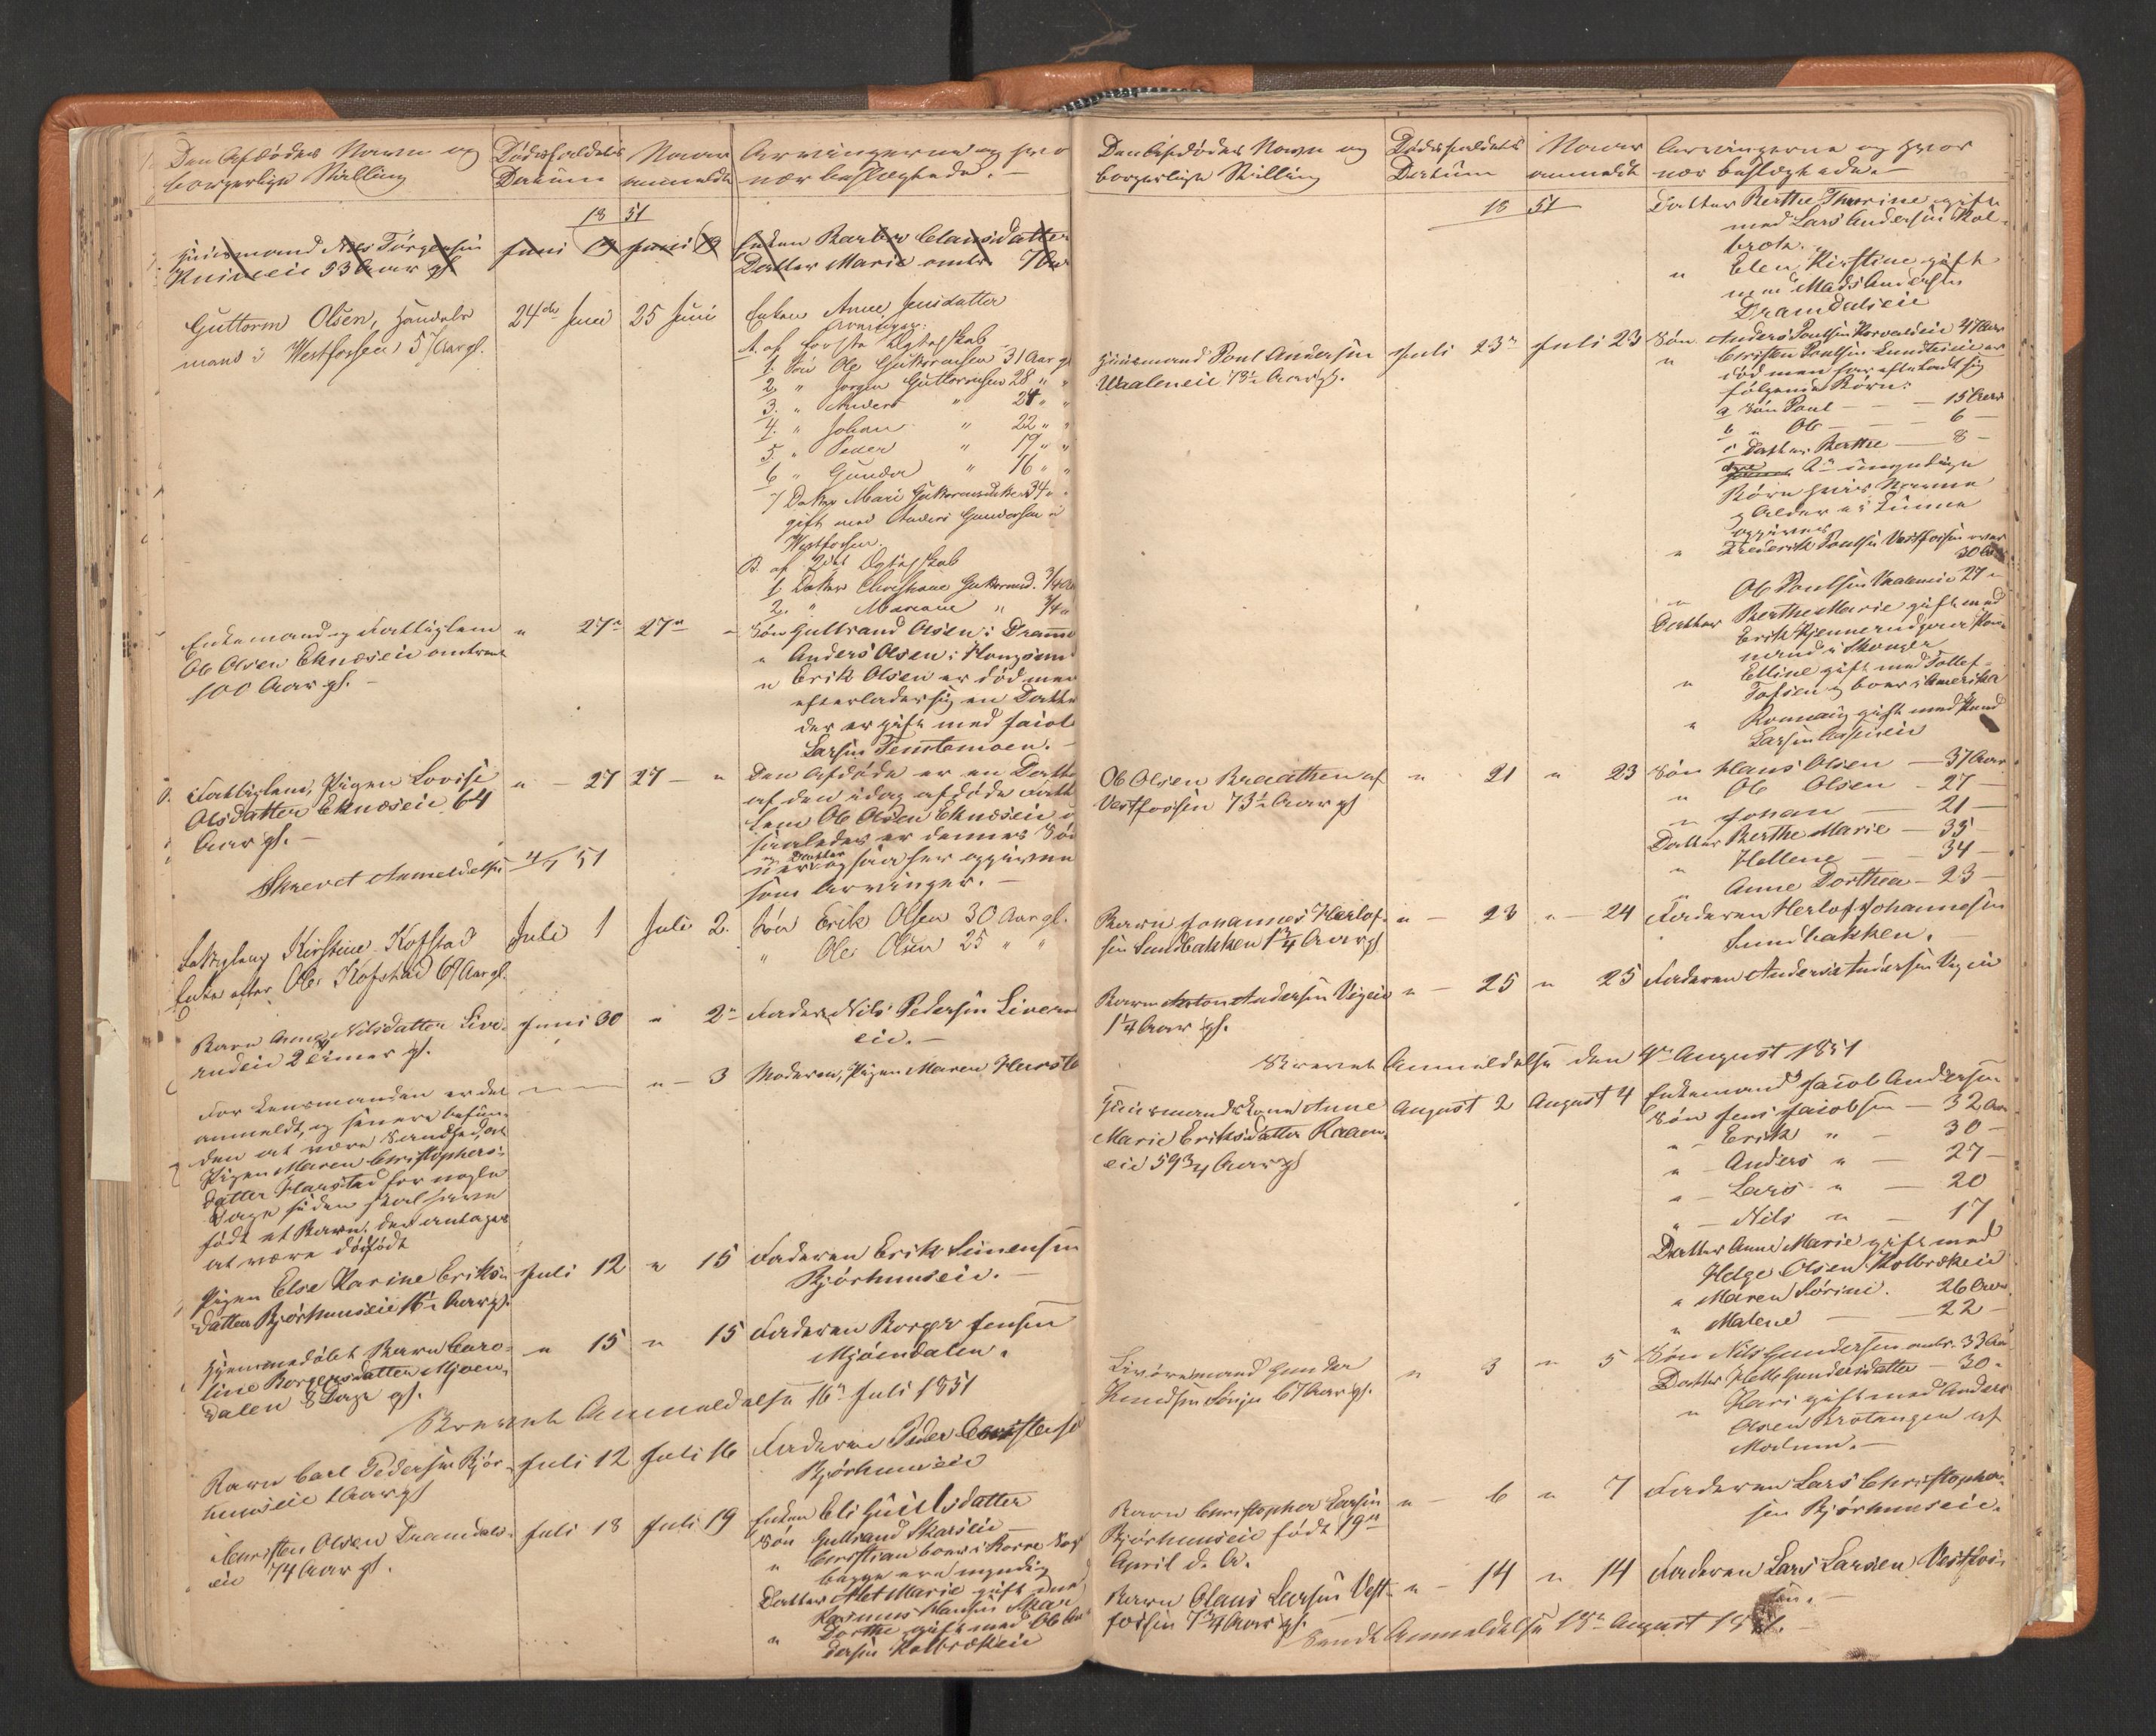 Den Afdødes Navn og
borgerlige Stilling
Dødsfaldets
Datum
Naar
anmeldt
Arvingerne og hvor
nær beslægtede. –
18 51
Huusmand Nils Jørgensen
53 Aar gl.
Juni 19 Juni 19
Enken Barbro Clausdatter
Datter Marie omtr. 7 Aar
Guttorm Olsen, Handels
mand i Westfossen 57 Aar gl.
24de Juni 25 Juni
Enken Anne Jensdatter
Arvinger:
A. af første Ægteskab
1. Søn Ole Guttormsen 31 Aar gl
2. " Jørgen Guttormsen 28 " "
3. " Anders " 24 " "
4. " Johan " 22 " "
5. " Peder " 19 " "
6 " Gunder " 16 " "
7 Datter Mari Guttormsdatter 34 " "
gift med Anders Gundersen i
Westfossen.
B. af 2det Ægteskab
1 Datter Christiane Guttormsd. 3/4 Aar
2. " Mariane " 3/4 "
Enkemand og Fattiglem
Ole Olsen Eknæseie omtrent
100 Aar gl. –
" 27n 27n "
Søn Gulbrand Olsen i Dramme
" Anders Olsen i Hougsund
" Erik Olsen er død men
efterlader sig en Datter
der er gift med Jacob
Larsen Temtemoen. –
Fattiglem, Pigen Lovise
Olsdatter Eknæseie 64
Aar gl. –
" – 27 27 – "
Den Afdøde er en Datter
af den idag afdøde Fattig
lem Ole Olsen Eknæseie og
saaledes er dennes Søn
ner og Datter ogsaa her opgivne
som Arvinger. –
Skrevet Anmeldelse 4/7 51
Fattiglem Kirstine Kofstad
Enke efter Ole Kofstad 69 Aar gl.
Juli 1 Juli 2.
Søn Erik Olsen 30 Aar gl.
" Ole Olsen 25 " "
Barn Anne Nilsdatter Live-
rudeie 2 Timer gl.
Juni 30 " 2n
Faderen Nils Pedersen Liverud
eie. –
For Lensmanden er det
anmeldt, og senere befun-
den at være Sandhed, at
Pigen Maren Christophers-
datter Harstad for nogle
Dage siden skal have
født et Barn, der antages
at være dødfødt
" – 3
Moderen, Pigen Maren Harsta
Pigen Else Karine Eriks-
datter Bjørkumseie 16½ Aar gl.
Juli 12 " 15
Faderen Erik Simensen
Bjørkumseie. –
Hjemmedøbt Barn Caro-
line Borgersdatter Mjøen-
dalen 8 Dage gl.
" 15 " 15
Faderen Borger Jensen
Mjøendalen.
Skrevet Anmeldelse 16n Juli 1851
Barn Carl Pedersen Bjør-
kumseie 1 Aar gl
Juli 12 Juli 16
Faderen Peder Christense
Bjørkumseie
Christen Olsen Dramdals-
eie 74 Aar gl.
Juli 18 Juli 19
Enken Eli Huulsdatter
Søn Gulbrand Skarseie –
" Christian boer i Sogn
begge ere myndig
Datter Alet Marie gift med
Rasmus Hansen
" Dorthe gift med Ole An-
dersen Kolbrækeie
Den Afdødes Navn og
borgerlige Stilling
Dødsfaldets
Datum
Naar
anmeldt
Arvingerne og hvor
nær beslægtede. –
18 51
Datter Berthe Thrine gift
med Lars Andersen Kol-
bræk.
" Elen Kirstine gift
med Mads Andersen
Dramdalseie
Huusmand Poul Andersen
Waaleneie 73½ Aar gl.
Juli 23n Juli 23
Søn Anders Poulsen Horvedeie 47 Aar
" Christen Poulsen Lundteie er
død men har efterladt sig
følgende Børn:
a Søn Poul – – 15 Aar
b " Ole – – 6 –
c Datter Berthe – 8 –
2n umyndige
Børn hvis Navne
og Alder ei kunne
opgives
" Frederik Poulsen Vestfossen over
30 Aar
" Ole Poulsen Vaaleneie 27 "
Datter Berthe Marie gift med
Erik
mand i Skouger
" Elline gift med Tollef
Tofsen og boer i Amerika
" Ronnaug gift med Knud
Larsen
Ole Olsen Braathen af
Vestfossen 73½ Aar gl
" 21 " 23
Søn Hans Olsen – 37 Aar
" Ole Olsen – 27 –
" Johan – 21 –
Datter Berthe Marie – 35 –
" Hellene – – 34 –
" Anne Dorthea – 23 –
Barn Johannes Herlof-
sen Lundbakken 1¾ Aar gl
" – 23 " – 24
Faderen Herlof Johannesen
Lundbakken. –
Barn Anton Andersen Vigeie
1¼ Aar gl.
" – 25 " 25
Faderen Anders Andersen Vigeie
Skrevet Anmeldelse den 4n August 1851
Huusmandskone Anne
Marie Eriksdatter Raaen-
eie 59¾ Aar gl
August 2 August 4
Enkemand Jacob Andersen
Søn Jens Jacobsen – 32 Aar
" Erik " – 30 –
" Anders " – 27 –
" – Lars " – 20
" – Nils " – 17
Datter Anne Marie gift med
Helge Olsen Kolbrækeie
" Maren Sørine. 26 Aar
" Malene – 22 –
Livøremand Gunder
Knudsen 67 Aar gl.
" 3 " 5
Søn Nils Gundersen omtr. 33 Aar
Datter Helle Gundersdatter – 30 "
" Kari gift med Anders
Olsen Brotangen af
Modum. –
Barn Christopher Larsen
Bjørkumseie født 19n
April d. A.
" – 6 " 7
Faderen Lars Christopher-
sen Bjørkumseie.
Barn Olaus Larsen Vest-
fossen 7¾ Aar gl.
" – 14 " 14
Faderen Lars Larsen Vestfos-
sen. –
Sendt Anmeldelse 15n August 1851. –